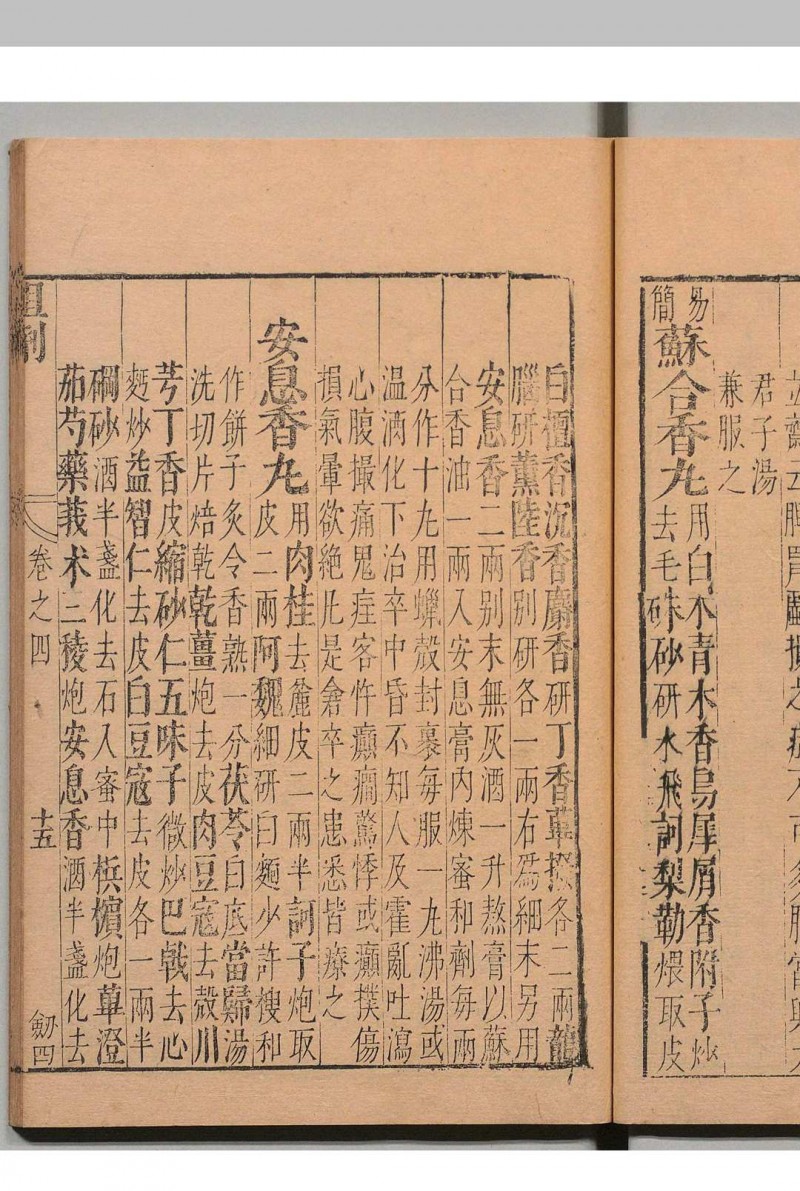 君子湯
兼服之
易簡蘇合香丸用白朮青木香烏犀屑香附子炒
去毛硃砂研水飛訶梨勒煨取皮
白檀香沉香麝香研丁香蓽撥各二兩龍
腦研薰陸香別研各一兩右爲細末另用
安息香二兩別末無灰酒一升熬膏以蘇
合香油一兩入安息膏內煉蜜和劑每兩
分作十丸用蠟殼封裹每服一丸沸湯或
溫酒化下治卒中昏不知人及霍亂吐瀉
心腹撮痛鬼疰客忤癲癇驚悸或癲撲傷
損氣暈欲絕凡是倉卒之患悉皆療之
安息香丸用肉桂去麄皮二兩半訶子炮取
皮二兩阿魏細研白麵少許搜和
作餅子炙令香熟一分茯苓白底當歸湯
洗切片焙乾乾薑炮去皮肉豆寇去殼川
芎丁香皮縮砂仁五味子微炒巴戟去心
麪炒益智仁去皮白豆寇去皮各一兩半
硇砂酒半盞化去石入蜜中梹榔炮蓽澄
茄芍藥莪朮三稜炮安息香酒半盞化去
卷之四
十五